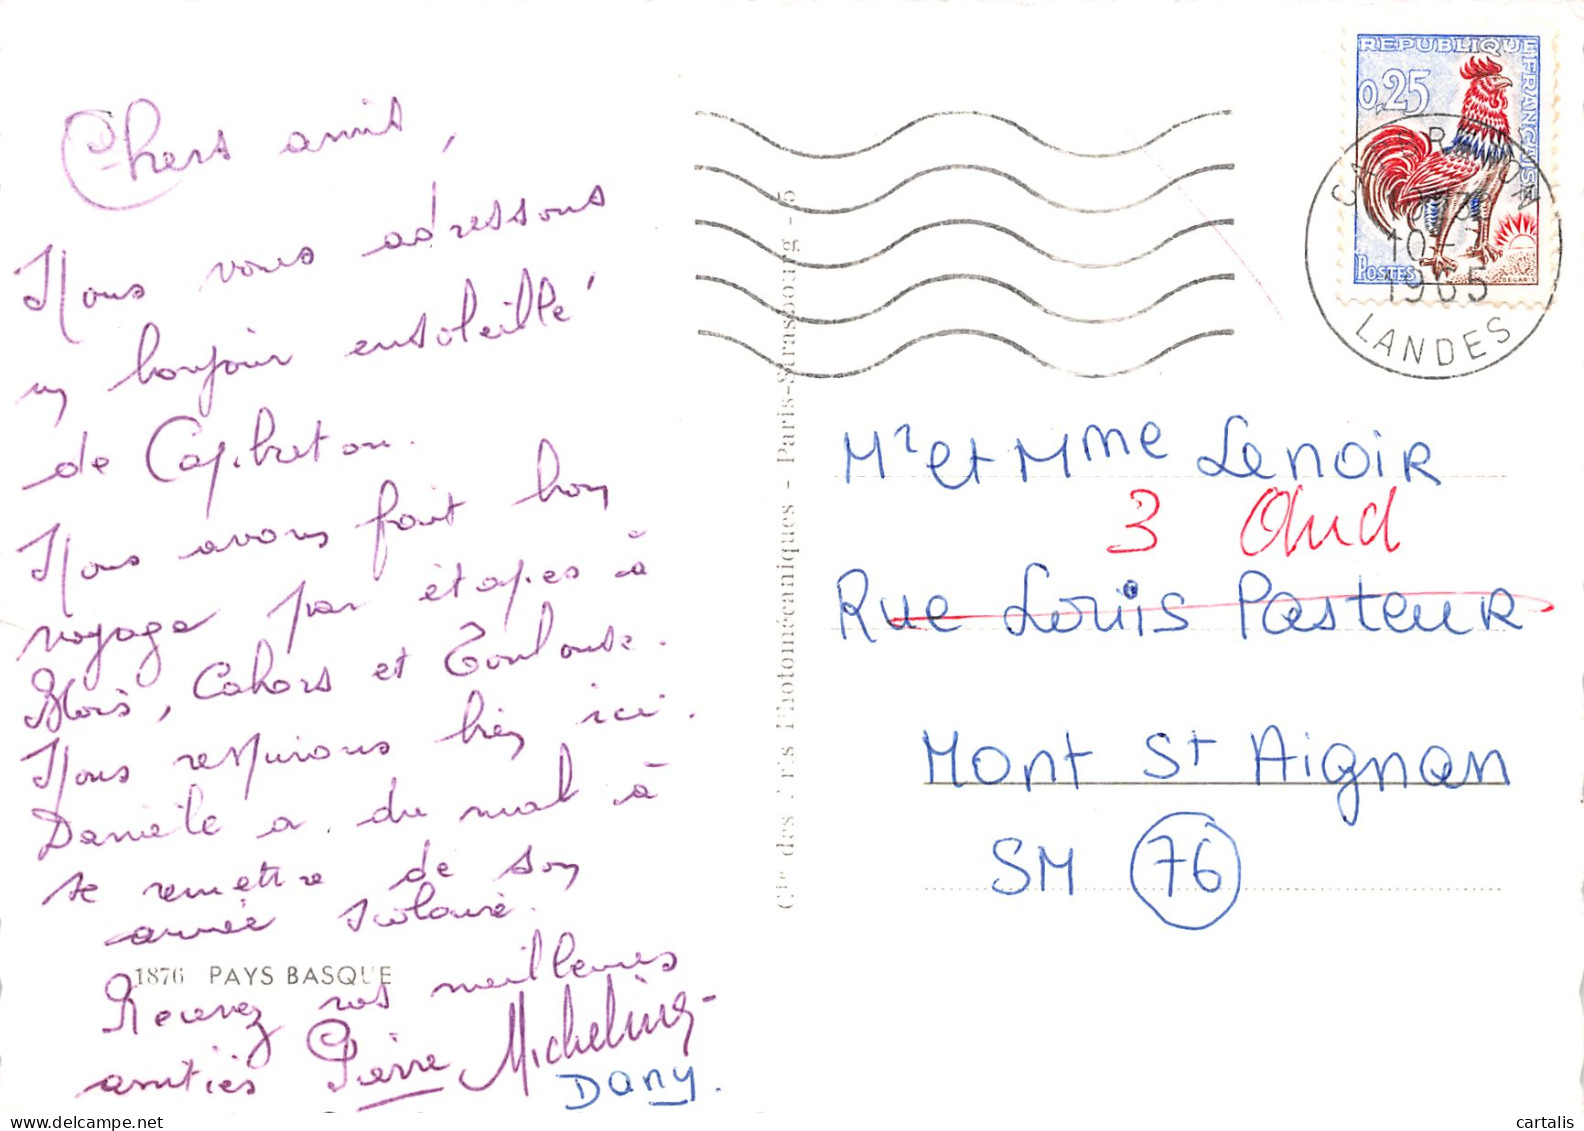 Chers amis,
Nous vous adressons
un bonjour ensoleillé
de Capbreton.
Nous avons fait bon
voyage par étapes à
Blois, Cahors et Toulouse.
Nous respirons bien ici.
Danièle a du mal à
se remettre de son
année scolaire.
1876 PAYS BASQUE
Recevez nos meilleures
amitiés Pierre Micheline
Dany.
Cie des Arts Photomécaniques - Paris-Strasbourg - 5
REPUBLIQUE FRANÇAISE
0,25
POSTES
DECARIS
CAPBRETON
10-7
1965
LANDES
Mr et Mme Lenoir
3
Rue Louis Pasteur
Mont St Aignan
SM 76
cartalis